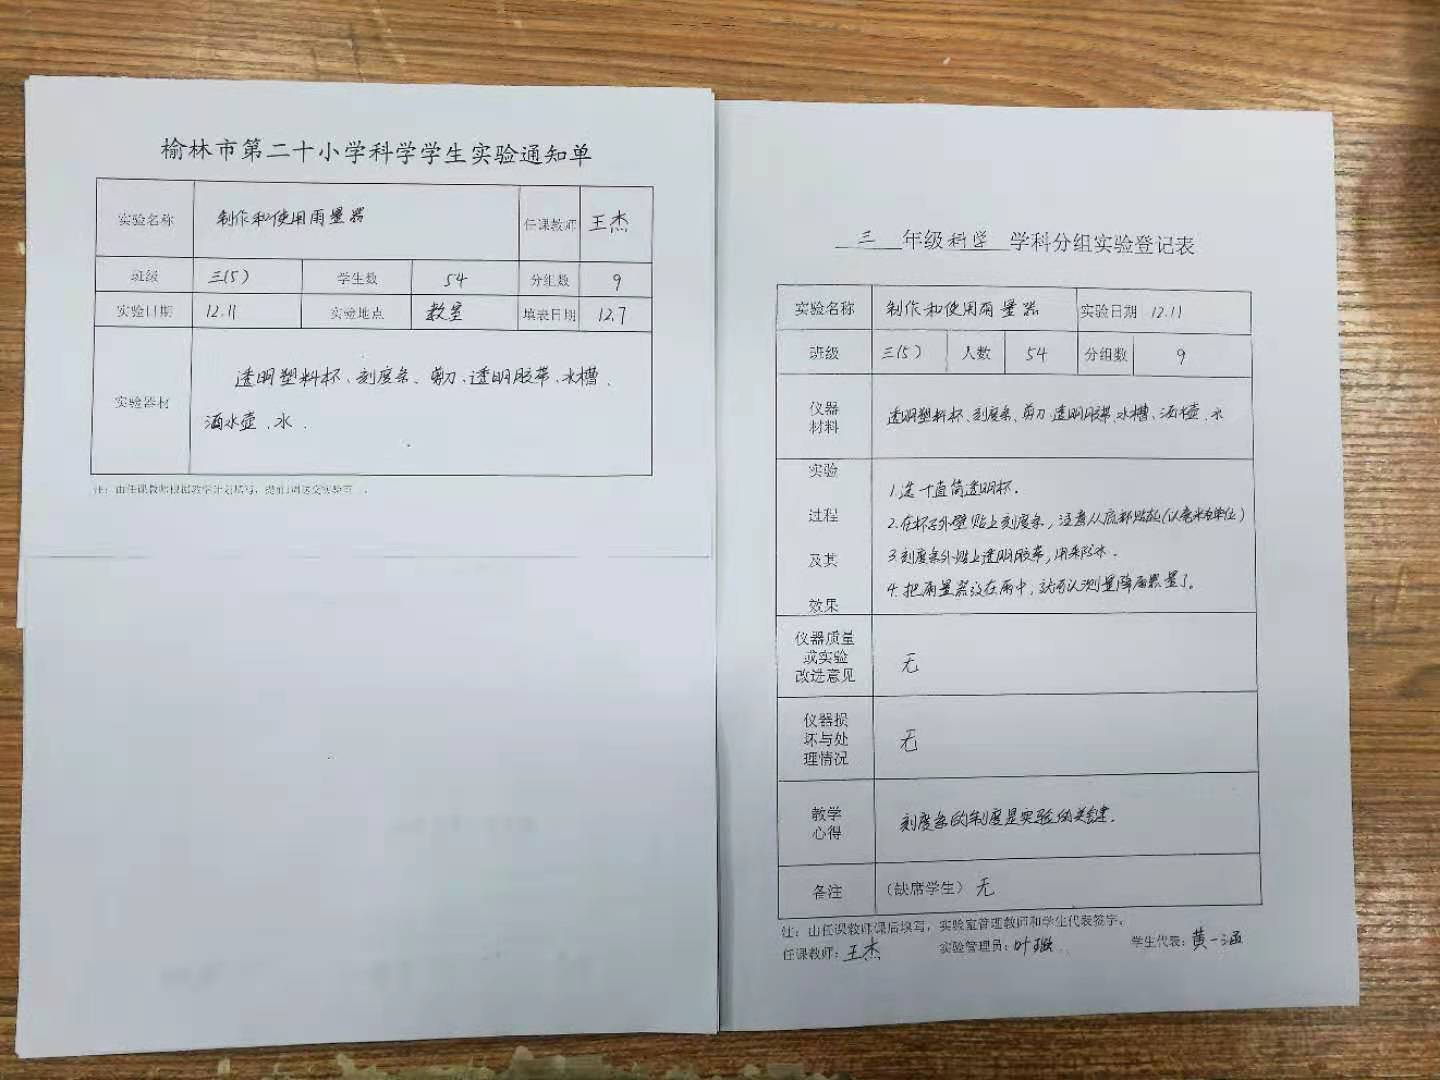 榆林市第二十小学科学学生实验通知单
实验名称 制作和使用雨量器 任课教师 王杰
班级 三(5) 学生数 54 分组数 9
实验日期 12.11 实验地点 教室 填表日期 12.7
实验器材 透明塑料杯、刻度条、剪刀、透明胶带、水槽、
洒水壶、水.
注：由任课教师根据教学计划填写，提前1周送交实验室
三 年级 科学 学科分组实验登记表
实验名称 制作和使用雨量器 实验日期 12.11
班级 三(5) 人数 54 分组数 9
仪器
材料
透明塑料杯、刻度条、剪刀、透明胶带、水槽、洒水壶、水
实验
过程
及其
效果
1.选一个直筒透明杯.
2.在杯子外壁贴上刻度条，注意从底部贴起(以毫米为单位)
3.刻度条外贴上透明胶带，用来防水.
4.把雨量器放在雨中，就可以测量降雨量了。
仪器质量
或实验
改进意见
无
仪器损
坏与处
理情况
无
教学
心得
刻度条的制度是实验的关键.
备注 (缺席学生) 无
注：由任课教师课后填写，实验室管理教师和学生代表签字。
任课教师：王杰 实验管理员：叶 学生代表：黄一涵